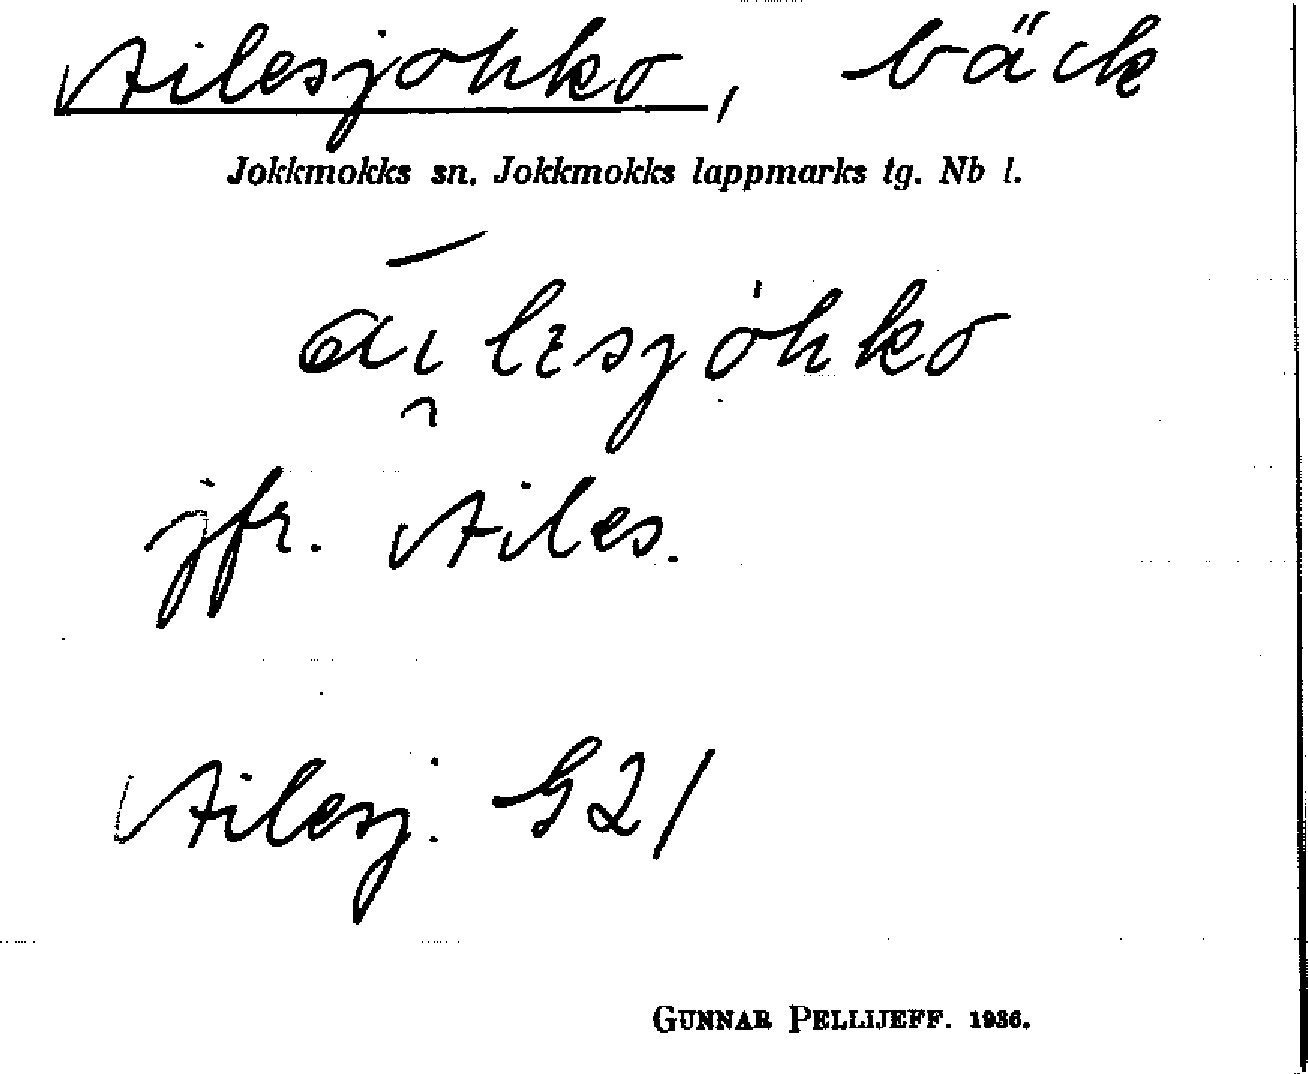 Ailesjohko, bäck
Jokkmokks sn. Jokkmokks lappmarks tg. Nb l.
jfr. Ailes.
Ailesj. G21
GUNNAR PELLIJEFF. 1936.